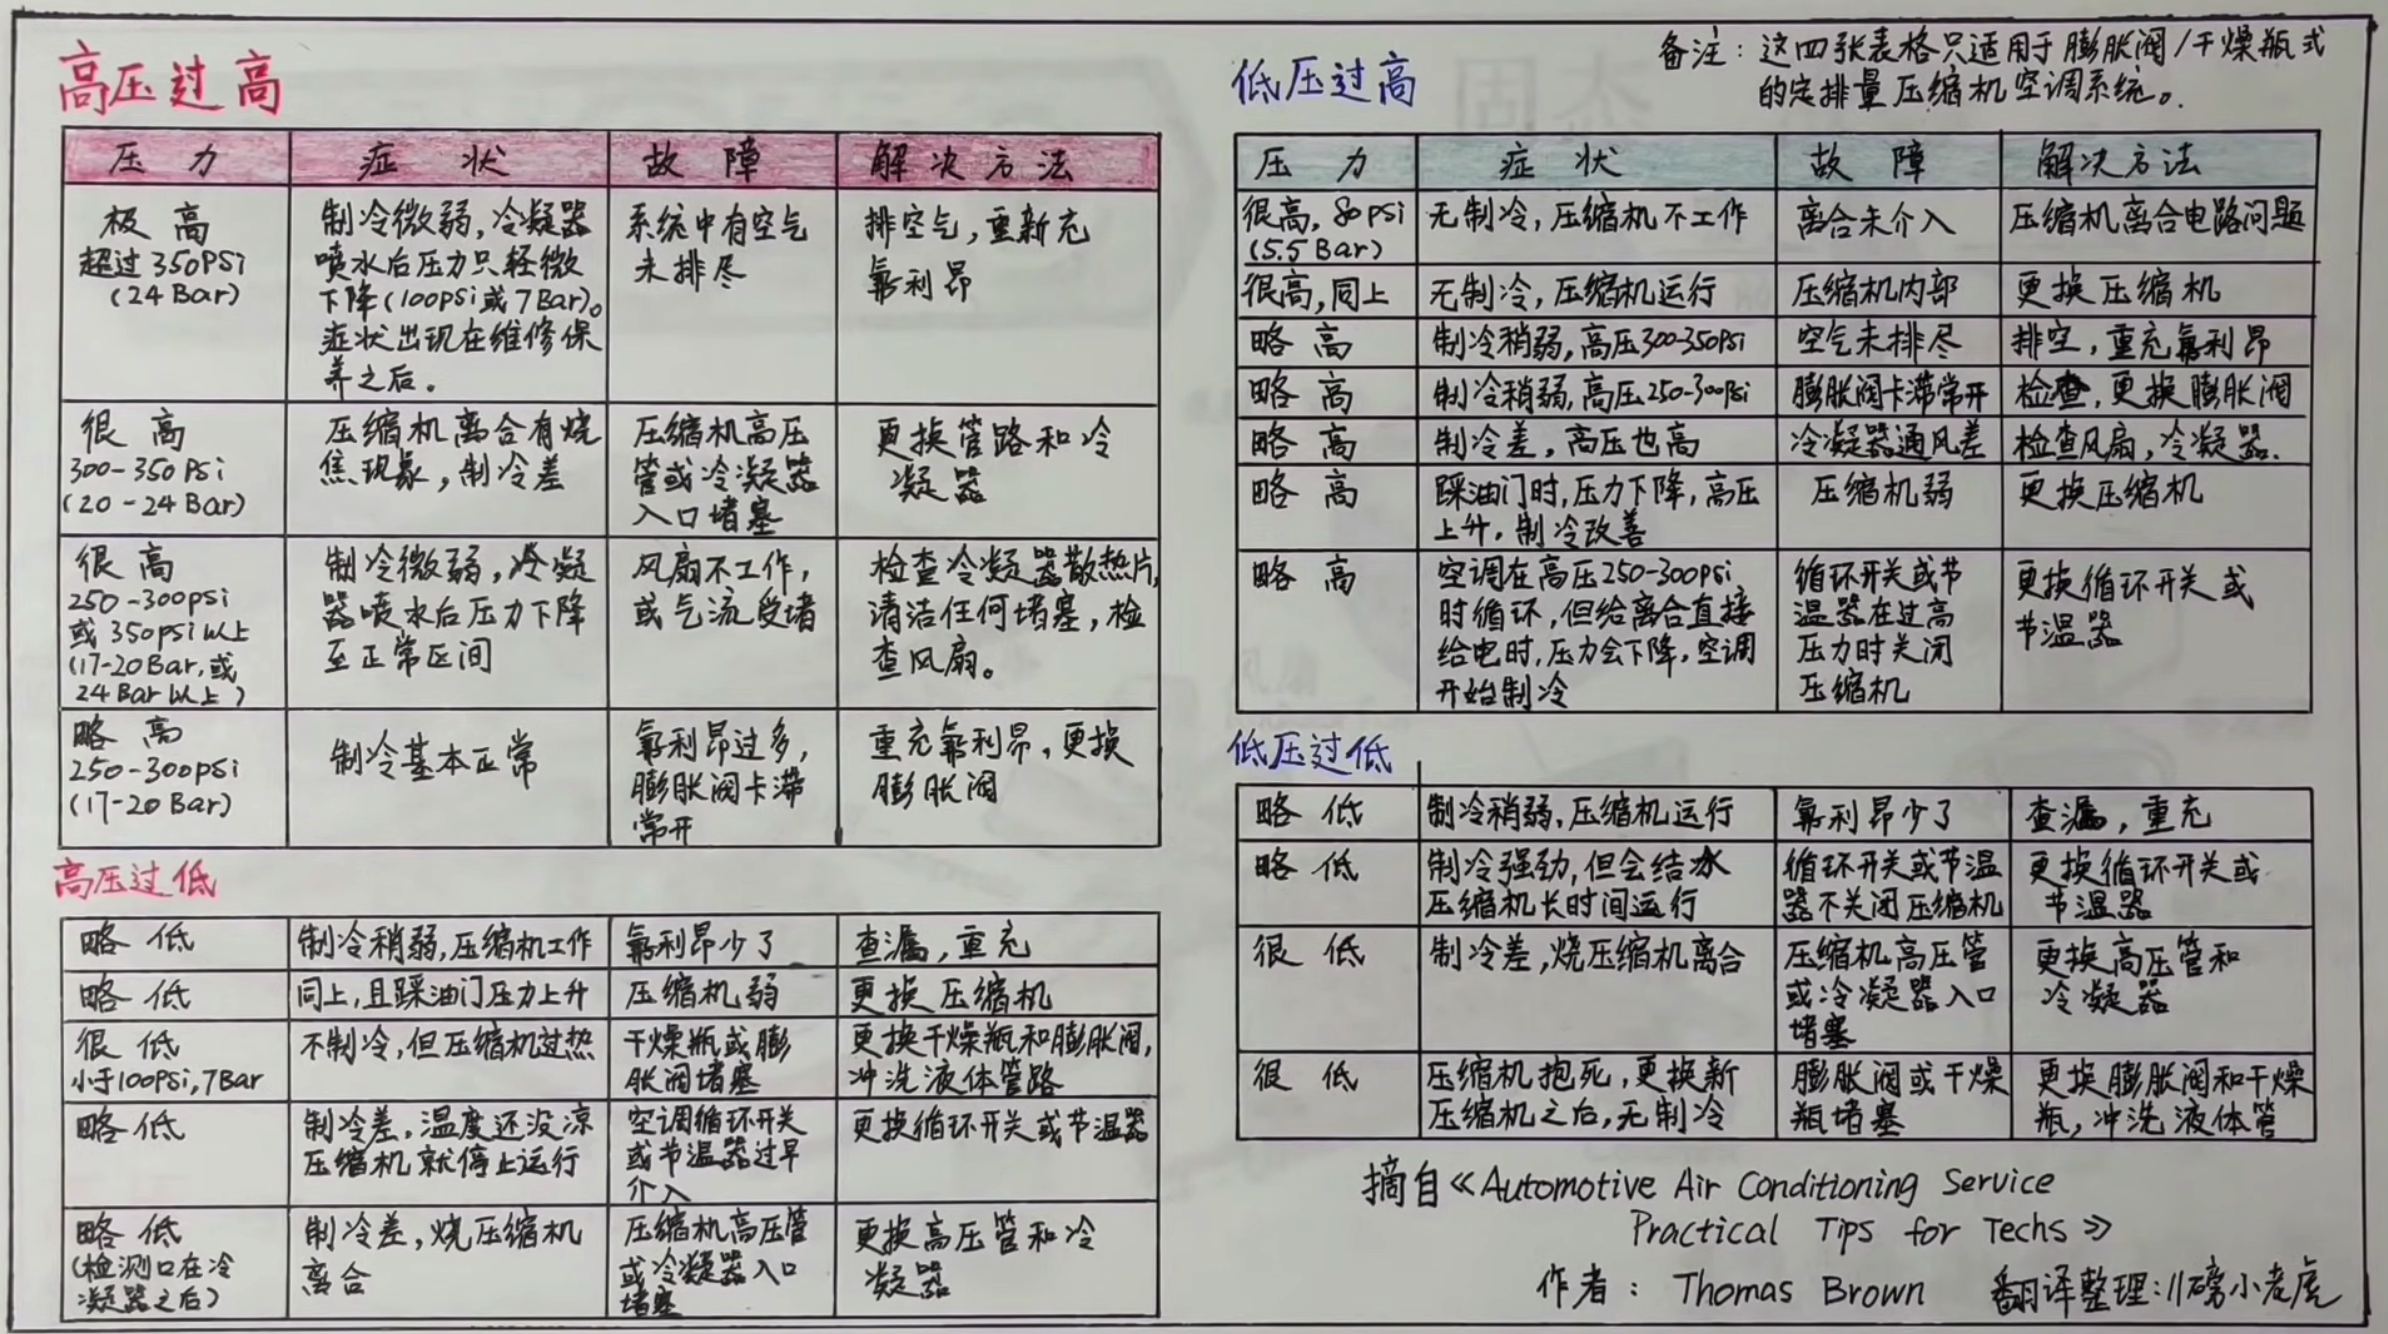 高压过高
压力 症状 故障 解决方法
极高
超过350PSi
(24 Bar)
制冷微弱,冷凝器
喷水后压力只轻微
下降(100psi或7Bar)。
症状出现在维修保
养之后。
系统中有空气
未排尽
排空气,重新充
氟利昂
很高
300-350 Psi
(20-24 Bar)
压缩机离合有烧
焦现象,制冷差
压缩机高压
管或冷凝器
入口堵塞
更换管路和冷
凝器
很高
250-300psi
或350psi以上
(17-20Bar,或
24Bar以上)
制冷微弱,冷凝
器喷水后压力下降
至正常区间
风扇不工作,
或气流受堵
检查冷凝器散热片,
清洁任何堵塞,检
查风扇。
略高
250-300psi
(17-20 Bar)
制冷基本正常
氟利昂过多,
膨胀阀卡滞
常开
重充氟利昂,更换
膨胀阀
高压过低
略低
制冷稍弱,压缩机工作
氟利昂少了
查漏,重充
略低
同上,且踩油门压力上升
压缩机弱
更换压缩机
很低
小于100Psi,7Bar
不制冷,但压缩机过热
干燥瓶或膨
胀阀堵塞
更换干燥瓶和膨胀阀,
冲洗液体管路
略低
制冷差,温度还没凉
压缩机就停止运行
空调循环开关
或节温器过早
介入
更换循环开关或节温器
略低
(检测口在冷
凝器之后)
制冷差,烧压缩机
离合
压缩机高压管
或冷凝器入口
堵塞
更换高压管和冷
凝器
备注:这四张表格只适用于膨胀阀/干燥瓶式
的定排量压缩机空调系统。
低压过高
压力 症状 故障 解决方法
很高,80psi
(5.5Bar)
无制冷,压缩机不工作
离合未介入
压缩机离合电路问题
很高,同上
无制冷,压缩机运行
压缩机内部
更换压缩机
略高
制冷稍弱,高压300-350Psi
空气未排尽
排空,重充氟利昂
略高
制冷稍弱,高压250-300psi
膨胀阀卡滞常开
检查,更换膨胀阀
略高
制冷差,高压也高
冷凝器通风差
检查风扇,冷凝器.
略高
踩油门时,压力下降,高压
上升,制冷改善
压缩机弱
更换压缩机
略高
空调在高压250-300psi
时循环,但给离合直接
给电时,压力会下降,空调
开始制冷
循环开关或节
温器在过高
压力时关闭
压缩机
更换循环开关或
节温器
低压过低
略低
制冷稍弱,压缩机运行
氟利昂少了
查漏,重充
略低
制冷强劲,但会结冰
压缩机长时间运行
循环开关或节温
器不关闭压缩机
更换循环开关或
节温器
很低
制冷差,烧压缩机离合
压缩机高压管
或冷凝器入口
堵塞
更换高压管和
冷凝器
很低
压缩机抱死,更换新
压缩机之后,无制冷
膨胀阀或干燥
瓶堵塞
更换膨胀阀和干燥
瓶,冲洗液体管
摘自《Automotive Air Conditioning Service
Practical Tips for Techs》
作者: Thomas Brown 翻译整理:11磅小老虎